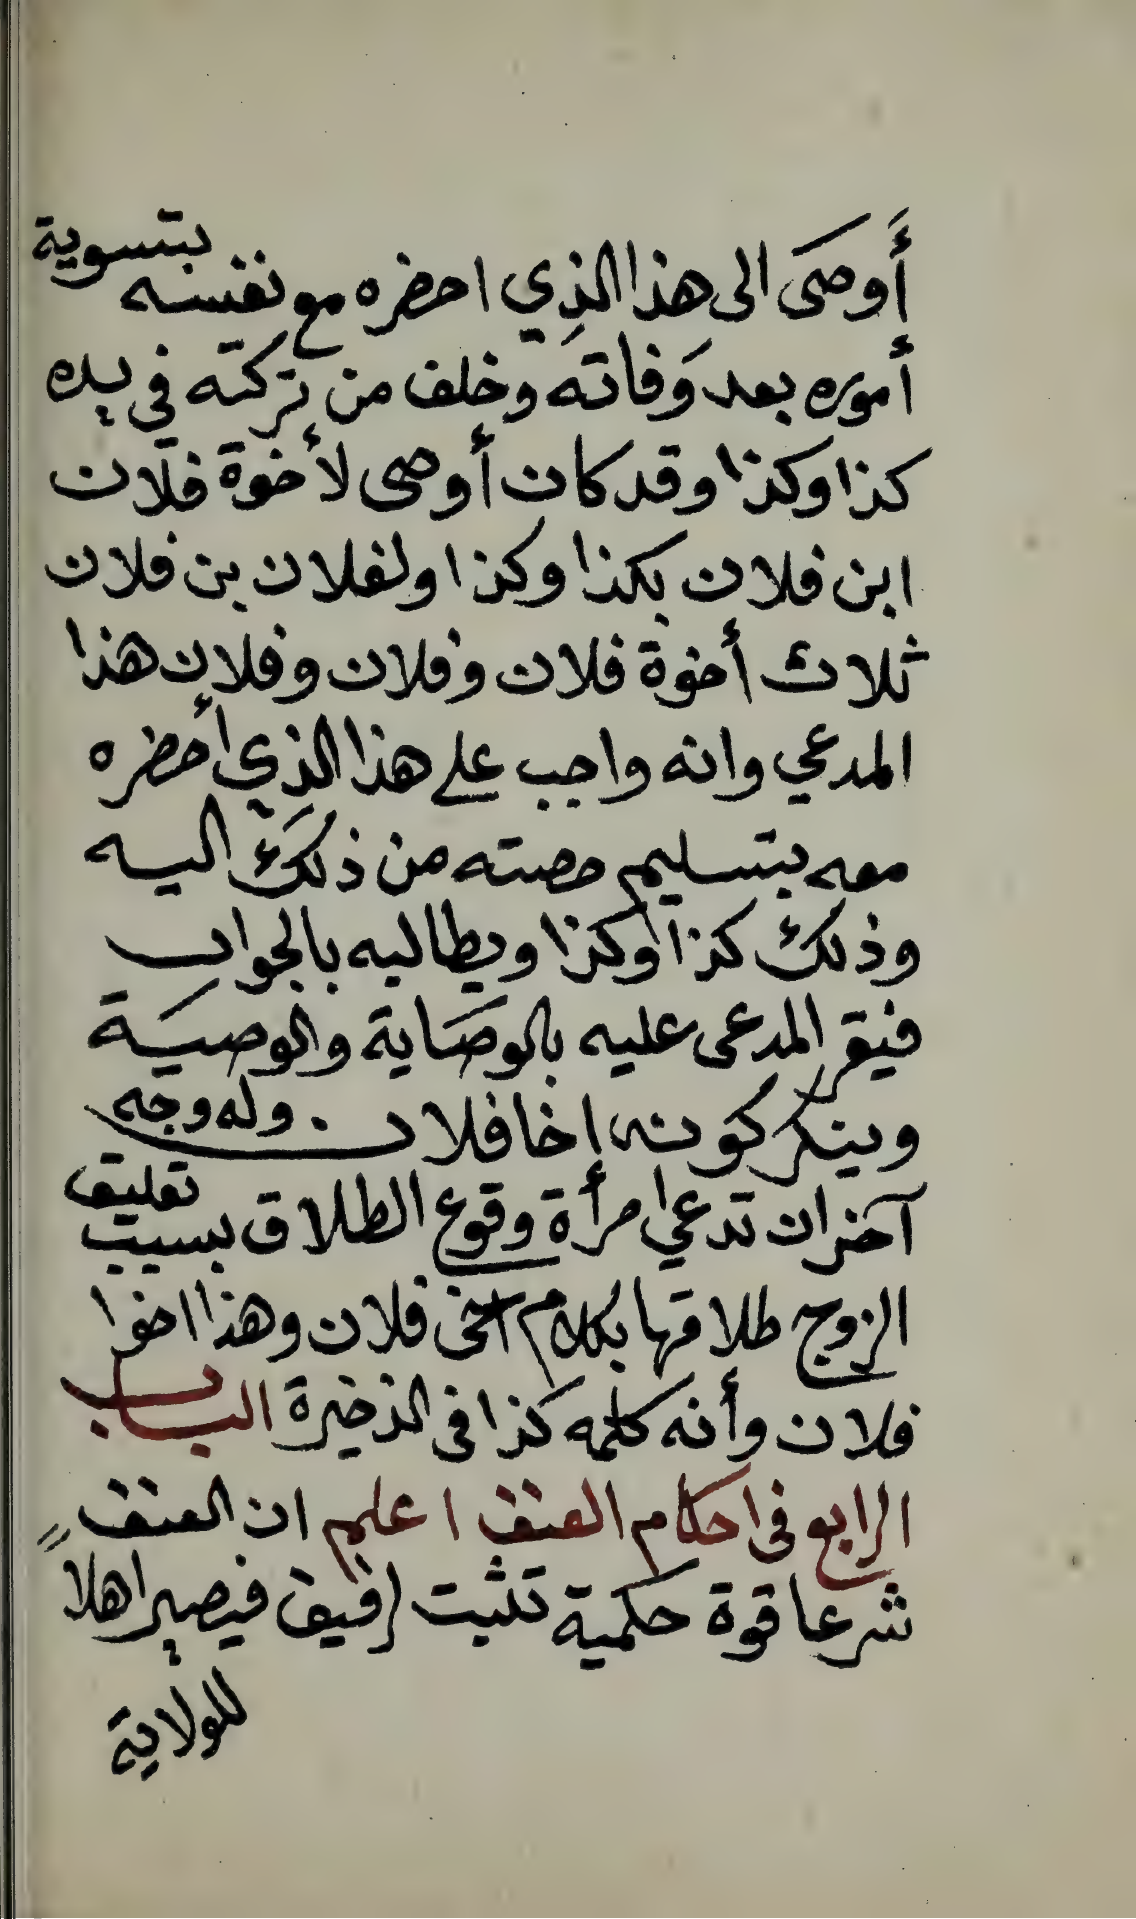 أَوصَى الى هذا الذِي احضره مع نفسه بتسوية
أموره بعد وَفاته وخلف من تركته في يده
كذا وكذا وقد كان أوصى لأخوة فلان
ابن فلان بكذا وكذا ولفلان بن فلان
ثلاث أخوة فلان وفلان وفلان هذا
المدعي وانه واجب على هذا الذي أحضره
معه بتسليم حصته من ذلك اليه
وذلك كذا وكذا ويطالبه بالجواب
فيقر المدعى عليه بالوصَاية والوصيَة
وينكر كونه اخا فلان . وله وجه
آخر ان تدعي امرأة وقوع الطلاق بسبب تعليق
الزوج طلاقها بكلام اخى فلان وهذا اخوا
فلان وأنه كلمه كذا فى الذخيرة الباب
الرابع فى احكام العتق اعلم ان العتق
شرعا قوة حكمية تثبت لرقيق فيصير اهلا
للولاية